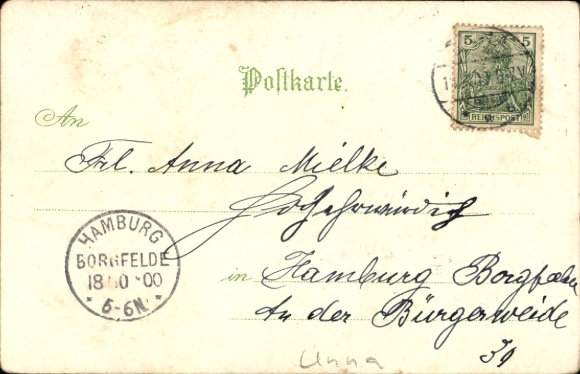 Postkarte.
5 5
REICHSPOST
An
Frl. Anna Mielke
HAMBURG
BORGFELDE
18 10 00
* 5-6N. *
in Hamburg Borgfelde
An der Bürgerweide
39
Unna